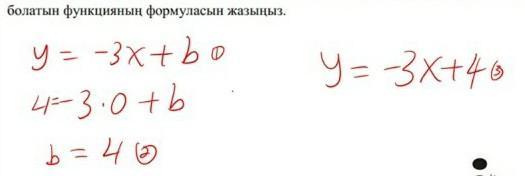 болатын функцияның формуласын жазыңыз.
y = -3x + b ①
4=-3·0 + b
b = 4 ②
y = -3x+4 ③